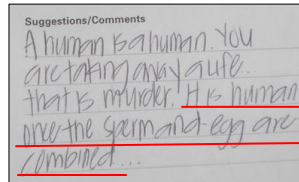 Suggestions/Comments
A human is a human. You
are taking away a life...
that is murder. It is human
once the sperm and egg are
combined...